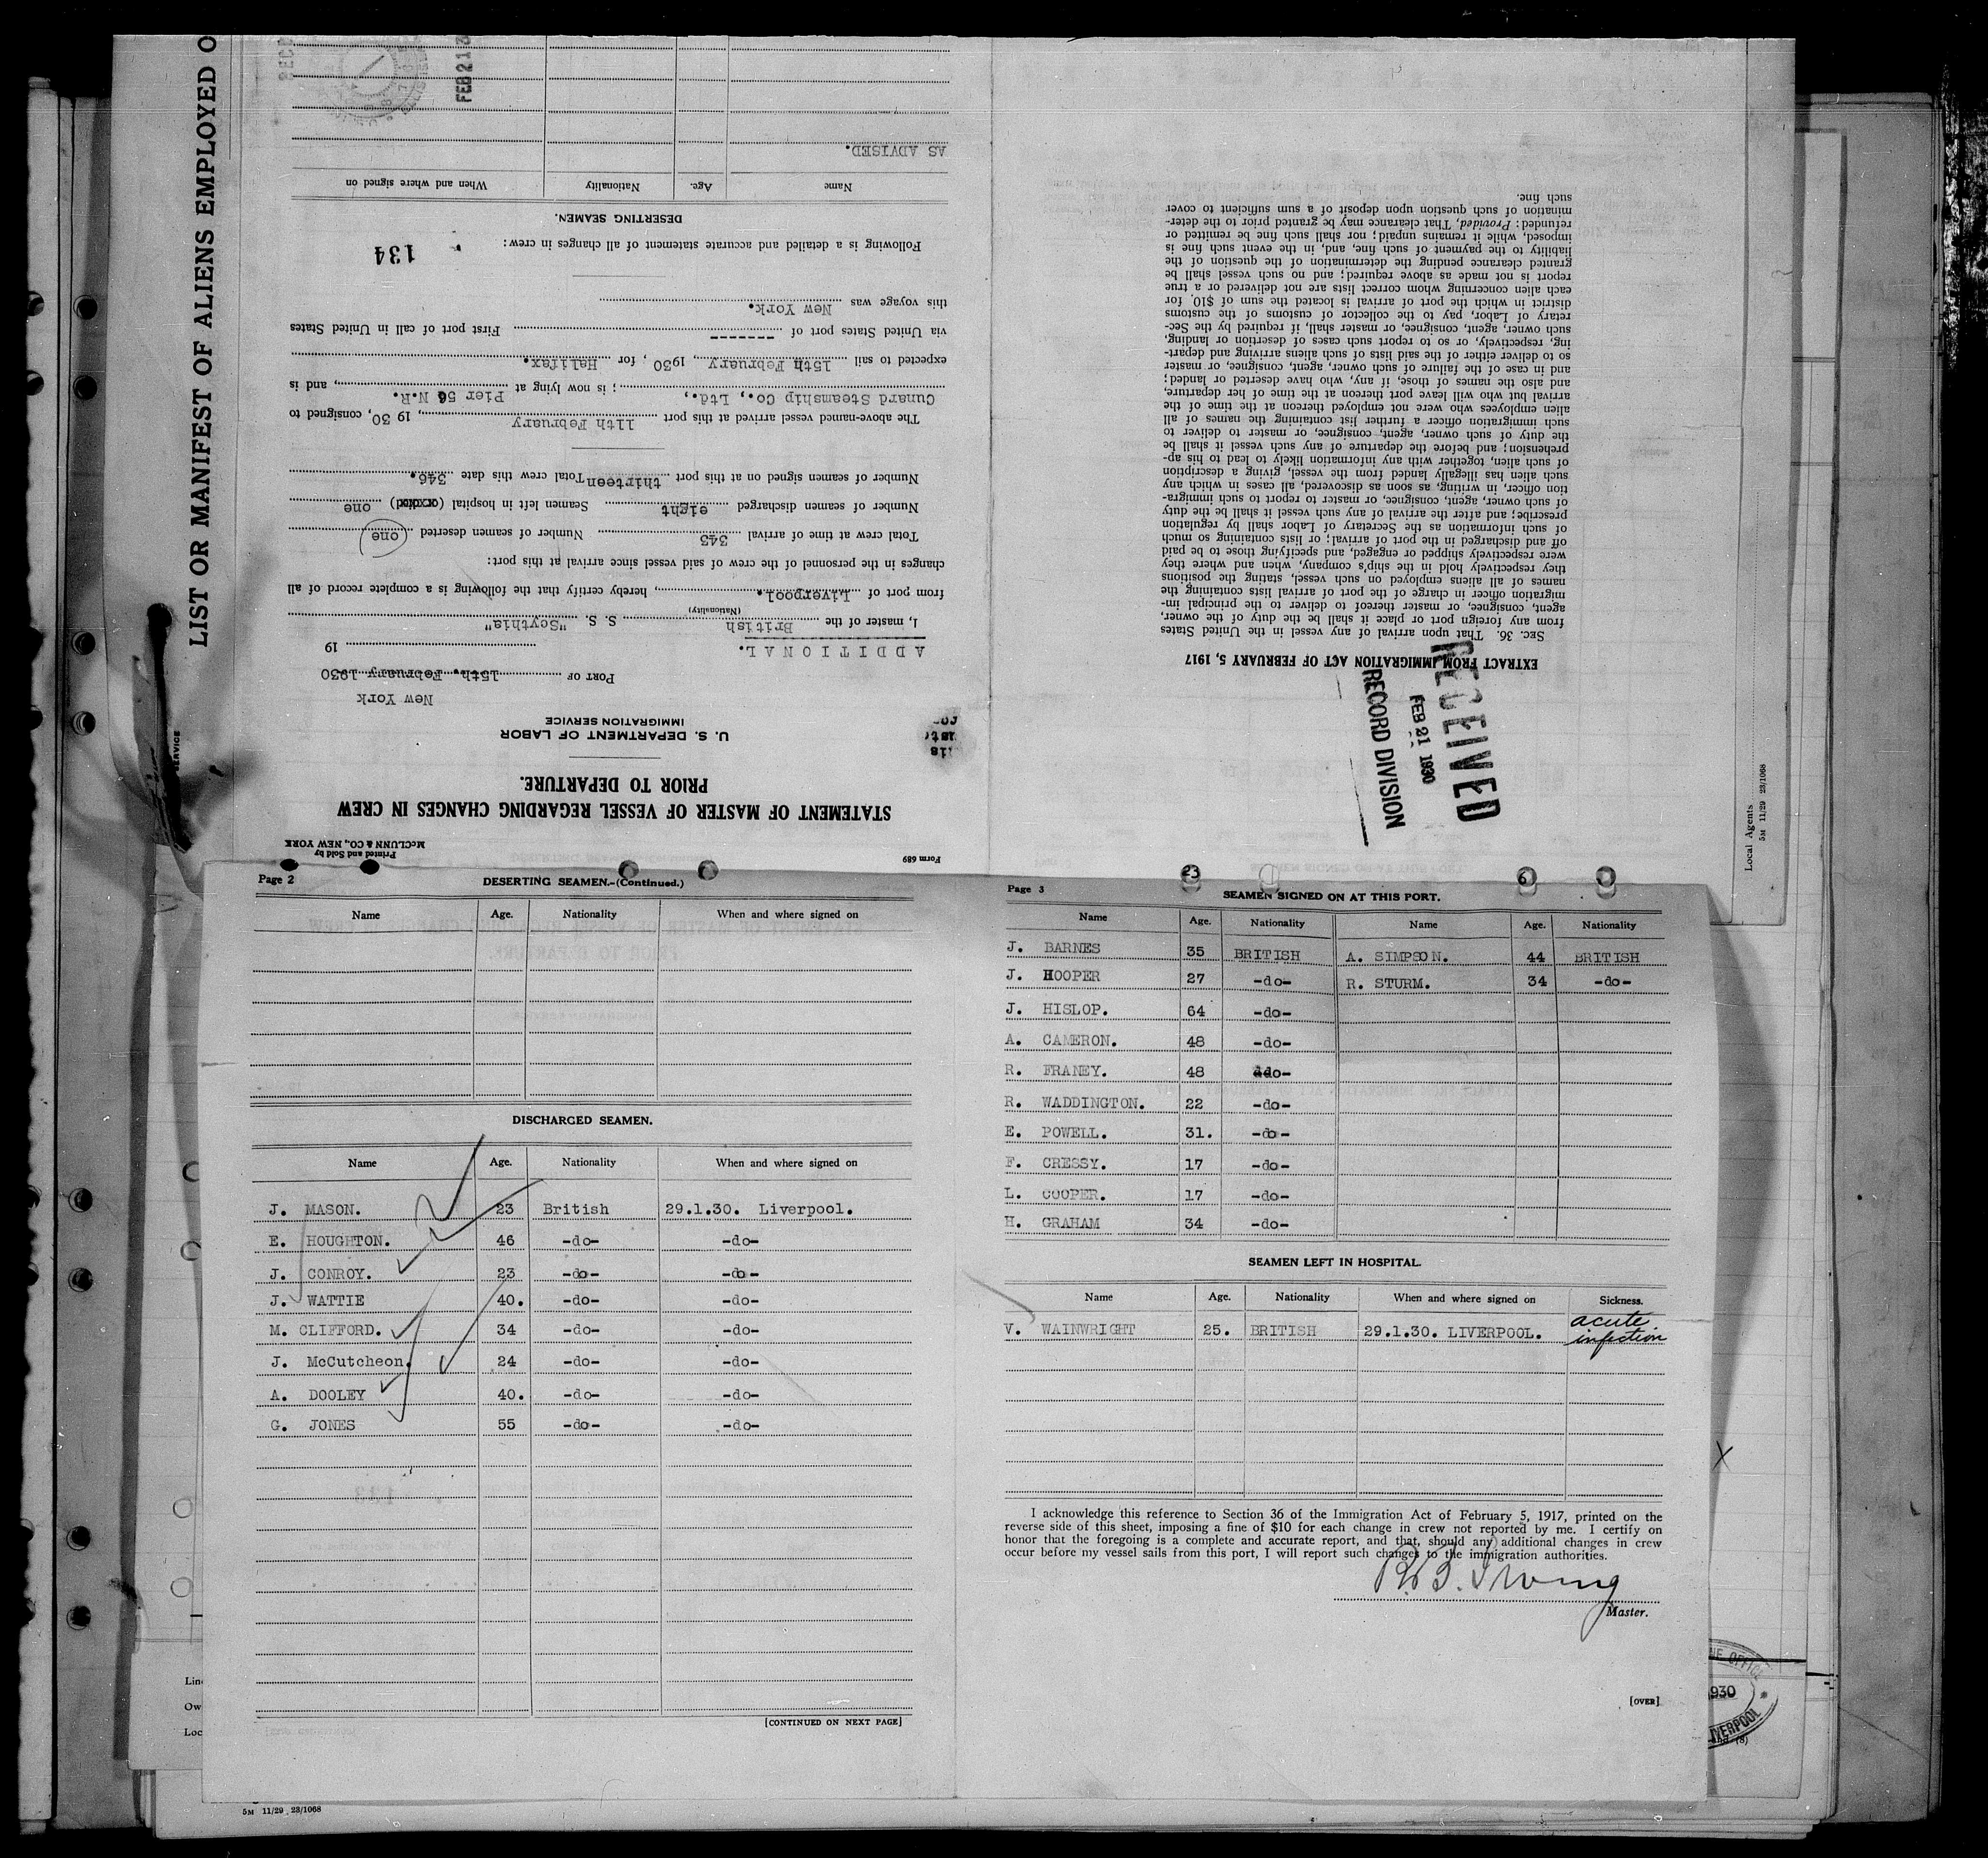 LIST OR MANIFEST OF ALIENS EMPLOYED O
Form 689
Printed and Sold by
McCLUNN & CO., NEW YORK
STATEMENT OF MASTER OF VESSEL REGARDING CHANGES IN CREW
PRIOR TO DEPARTURE.
U. S. DEPARTMENT OF LABOR
IMMIGRATION SERVICE
New York
PORT OF 15th. February 1930
ADDITIONAL. 19
I, master of the British S. S. "Scythia"
(Nationality)
from port of Liverpool., hereby certify that the following is a complete record of all
changes in the personnel of the crew of said vessel since arrival at this port:
Total crew at time of arrival 343 Number of seamen deserted one
Number of seamen discharged eight Seamen left in hospital one
Number of seamen signed on at this port thirteen Total crew this date 346.
The above-named vessel arrived at this port 11th February, 1930, consigned to
Cunard Steamship Co., Ltd., ; is now lying at Pier 56 N.R., and is
expected to sail 15th February, 1930, for Halifax.
via United States port of ------- First port of call in United States
this voyage was New York.
134
Following is a detailed and accurate statement of all changes in crew:
DESERTING SEAMEN.
Name Age. Nationality When and where signed on
AS ADVISED.
FEB 21 3
EXTRACT FROM IMMIGRATION ACT OF FEBRUARY 5, 1917
SEC. 36. That upon arrival of any vessel in the United States
from any foreign port or place it shall be the duty of the owner,
agent, consignee, or master thereof to deliver to the principal im-
migration officer in charge of the port of arrival lists containing the
names of all aliens employed on such vessel, stating the positions
they respectively hold in the ship's company, when and where they
were respectively shipped or engaged, and specifying those to be paid
off and discharged in the port of arrival; or lists containing so much
of such information as the Secretary of Labor shall by regulation
prescribe; and after the arrival of any such vessel it shall be the duty
of such owner, agent, consignee, or master to report to such immigra-
tion officer, in writing, as soon as discovered, all cases in which any
such alien has illegally landed from the vessel, giving a description
of such alien, together with any information likely to lead to his ap-
prehension; and before the departure of any such vessel it shall be
the duty of such owner, agent, consignee, or master to deliver to
such immigration officer a further list containing the names of all
alien employees who were not employed thereon at the time of the
arrival but who will leave port thereon at the time of her departure,
and also the names of those, if any, who have deserted or landed;
and in case of the failure of such owner, agent, consignee, or master
so to deliver either of the said lists of such aliens arriving and depart-
ing, respectively, or so to report such cases of desertion or landing,
such owner, agent, consignee, or master shall, if required by the Sec-
retary of Labor, pay to the collector of customs of the customs
district in which the port of arrival is located the sum of $10. for
each alien concerning whom correct lists are not delivered or a true
report is not made as above required; and no such vessel shall be
granted clearance pending the determination of the question of the
liability to the payment of such fine, and, in the event such fine is
imposed, while it remains unpaid; nor shall such fine be remitted or
refunded: Provided, That clearance may be granted prior to the deter-
mination of such question upon deposit of a sum sufficient to cover
such fine.
RECEIVED
FEB 21 1930
RECORD DIVISION
Local Agents
5M 11/29 23/1068
Page 2 DESERTING SEAMEN.-(Continued.)
Name Age. Nationality When and where signed on
DISCHARGED SEAMEN.
Name Age. Nationality When and where signed on
J. MASON. 23 British 29.1.30. Liverpool.
E. HOUGHTON. 46 -do- -do-
J. CONROY. 23 -do- -do-
J. WATTIE 40. -do- -do-
M. CLIFFORD. 34 -do- -do-
J. McCutcheon. 24 -do- -do-
A. DOOLEY 40. -do- -do-
G. JONES 55 -do- -do-
[CONTINUED ON NEXT PAGE]
5M 11/29 23/1068
23 6
Page 3 SEAMEN SIGNED ON AT THIS PORT.
Name Age. Nationality Name Age. Nationality
J. BARNES 35 BRITISH A. SIMPSON. 44 BRITISH
J. HOOPER 27 -do- R. STURM. 34 -do-
J. HISLOP. 64 -do-
A. CAMERON. 48 -do-
R. FRANEY. 48 -do-
R. WADDINGTON. 22 -do-
E. POWELL. 31. -do-
F. CRESSY. 17 -do-
L. COOPER. 17 -do-
H. GRAHAM 34 -do-
SEAMEN LEFT IN HOSPITAL.
Name Age. Nationality When and where signed on Sickness.
V. WAINWRIGHT 25. BRITISH 29.1.30. LIVERPOOL. acute infection
I acknowledge this reference to Section 36 of the Immigration Act of February 5, 1917, printed on the
reverse side of this sheet, imposing a fine of $10 for each change in crew not reported by me. I certify on
honor that the foregoing is a complete and accurate report, and that, should any additional changes in crew
occur before my vessel sails from this port, I will report such changes to the immigration authorities.
R. B. Irving
Master.
[OVER]
Line
Ow
Loc
1930
LIVERPOOL